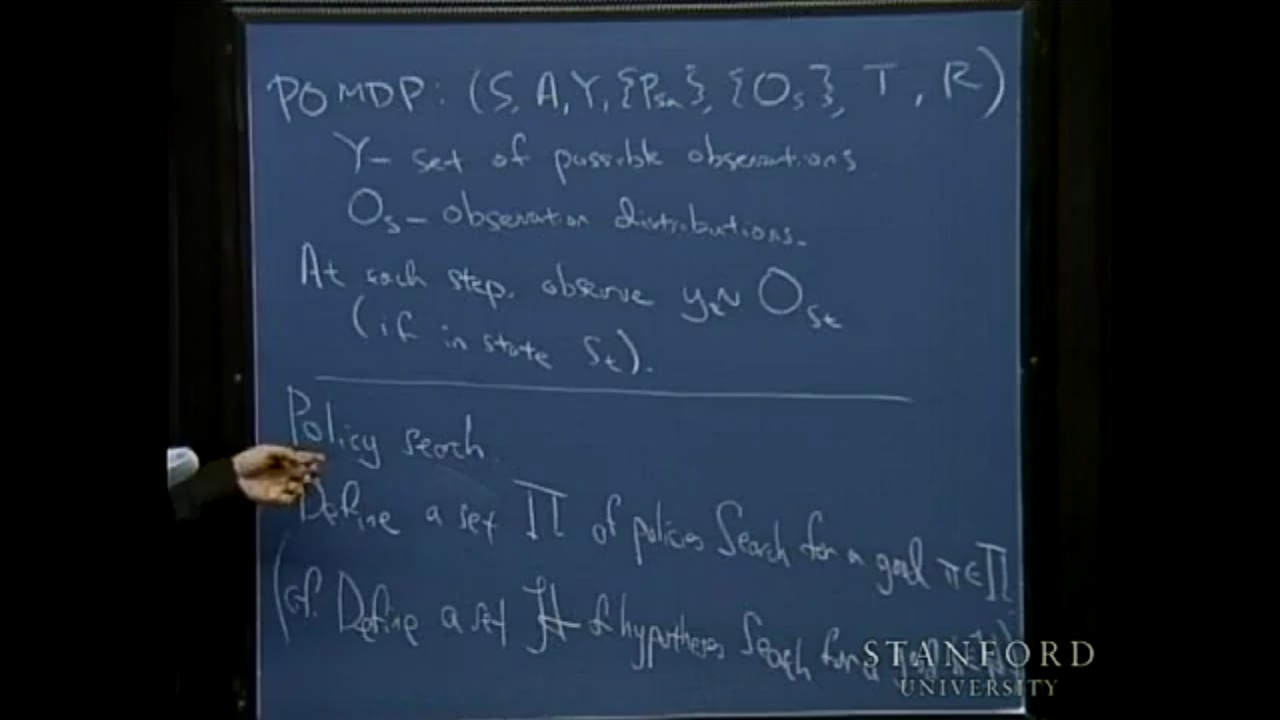 POMDP: (S, A, Y, {P_sa}, {O_s}, T, R)
Y - set of possible observations
O_s - observation distributions.
At each step, observe y_t ~ O_{s_t}
(if in state s_t).
Policy search.
Define a set Π of policies Search for a good π∈Π
(cf. Define a set H of hypotheses Search for a
STANFORD
UNIVERSITY